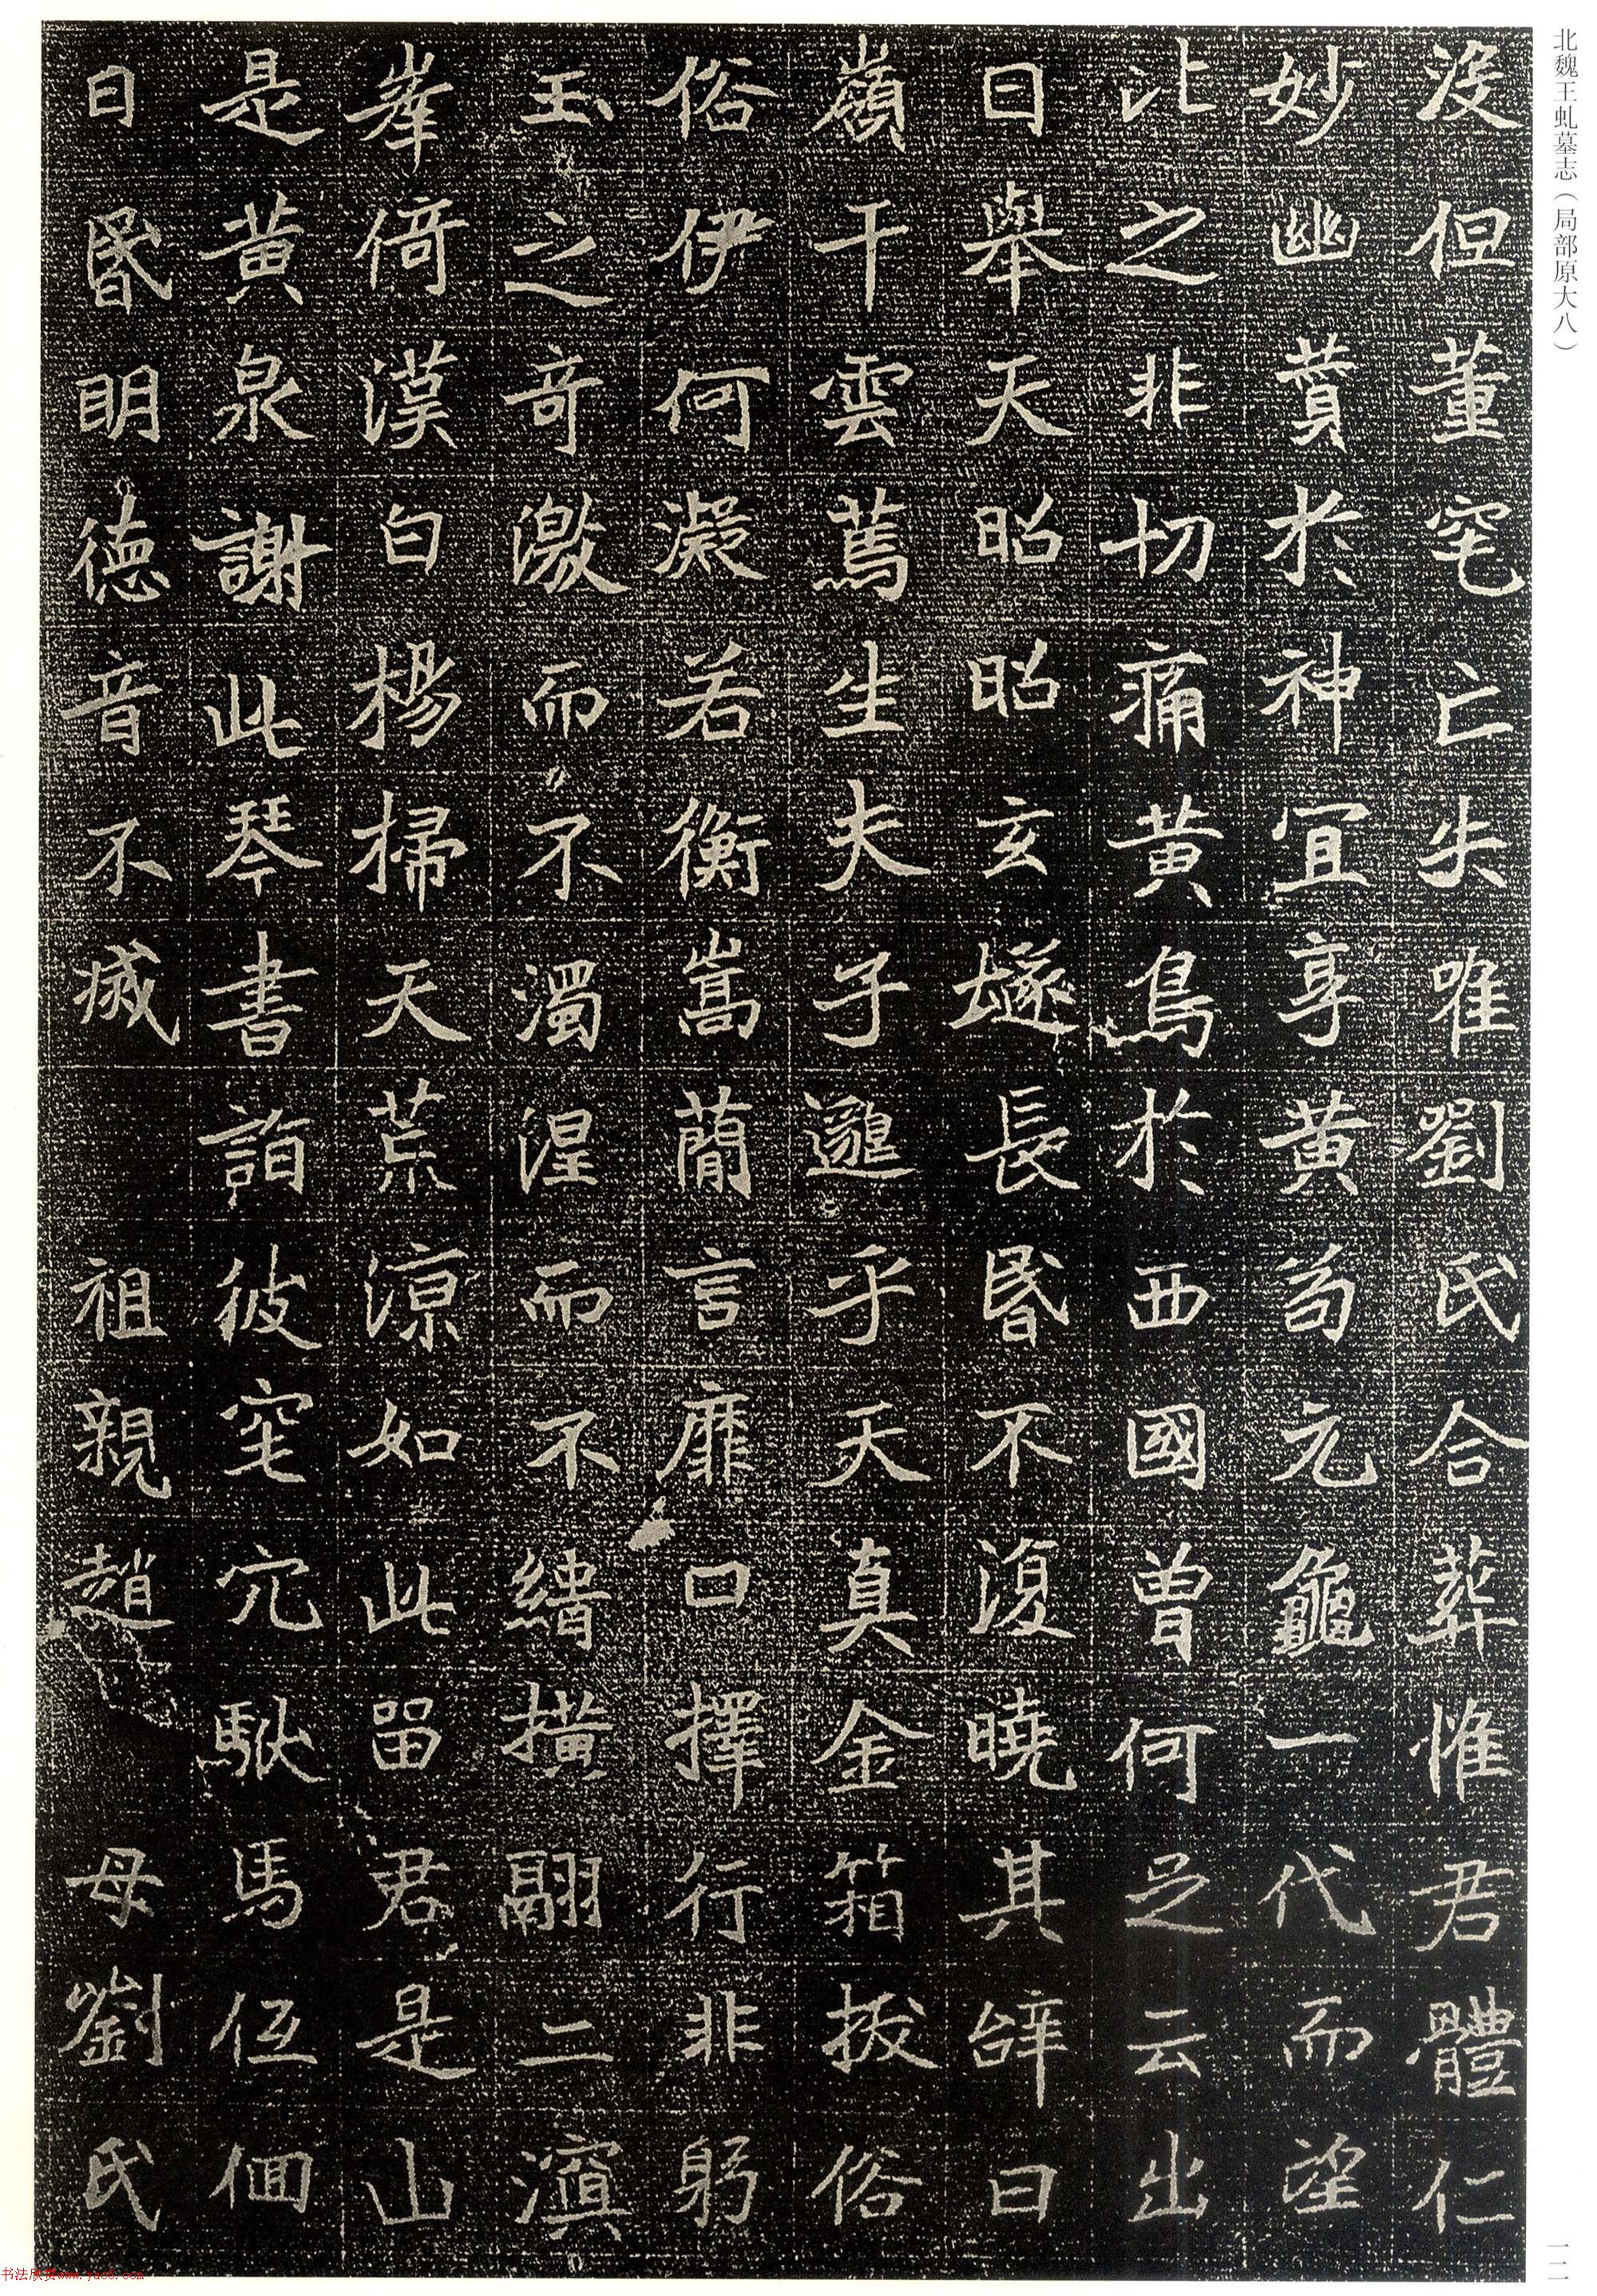 北魏王虬墓志（局部原大八）
没但董窀亡失唯劉氏合葬惟君體仁
妙幽賁於神冝享黄芶元龜一代而望
比之非切痛黄鳥於西國曾何足云出
日舉天昭昭玄燧長昬不復曉其辝曰
嶺干雲蔫生夫子邈乎天真金箱拔俗
俗伊何凝若衡嵩蕳言靡口擇行非躬
玉之奇激而不濁涅而不縉撗翮二濱
峯倚漢白楊掃天荒凉如此留君是山
是黄泉謝此琴書詣彼窀穴駟馬伍佪
日昬明德音不滅 祖親趙 母劉氏
一二
书法欣赏www.yac8.com